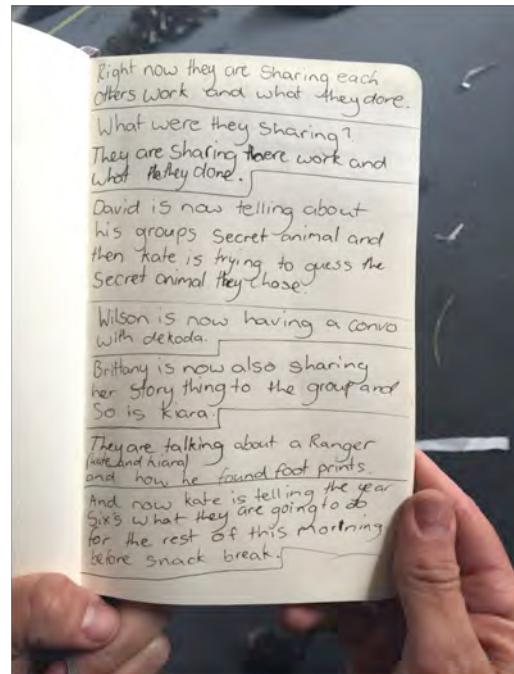 Right now they are Sharing each
others work and what they done.
What were they Sharing?
They are Sharing there work and
what they done.
David is now telling about
his groups Secret animal and
then kate is trying to guess the
Secret animal they chose.
Wilson is now having a convo
with dekoda.
Brittany is now also sharing
her story thing to the group and
So is kiara.
They are talking about a Ranger
(kate and kiara)
and how he found foot prints.
And now kate is telling the year
Six's what they are going to do
for the rest of this morning
before snack break.